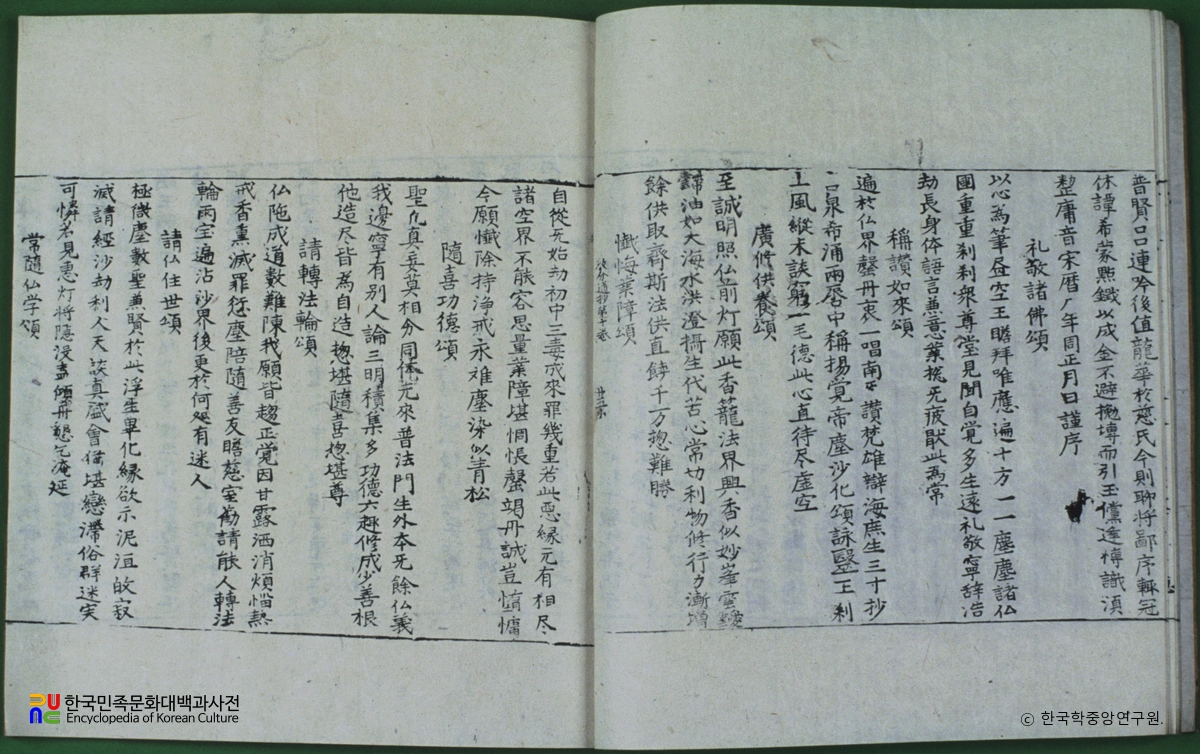 普賢口口連吟後值龍華於慈氏今則聊將鄙序輒冠
休譚希蒙點鐵以成金不避擲塼而引玉儻逢慱識湏
整庸音宋曆八年周正月日謹序
礼敬諸佛頌
以心為筆𦘕空王瞻拜唯應遍十方一一塵塵諸仏
國重重刹刹衆尊堂見聞自覺多生遠礼敬寧辞浩
劫長身体語言兼意業㧾无疲猒此為常
稱讚如來頌
遍於仏界罄丹衷一唱南无讚梵雄辯海庶生三寸抄
言泉希涌兩唇中稱揚覚帝塵沙化頌詠毉王刹
土風縱未談窮一毛德此心直待尽虛空
廣修供養頌
至誠明照仏前灯願此香籠法界興香似妙峯雲靉
靆油如大海水洪澄攝生代苦心常切利物修行力漸增
餘供取齊斯法供直饒千万揔難勝
懺悔業障頌
自從无始劫初中三毒成來罪幾重若此惡緣元有相尽
諸空界不能容思量業障堪惆悵罄竭丹誠豈惰慵
今願懺除持浄戒永难塵染似青松
隨喜功德頌
聖凡真妄莫相分同体元來普法門生外本无餘仏義
我邊寧有別人論三明積集多功德六趣修成少善根
他造尽皆為自造揔堪隨喜揔堪尊
請轉法輪頌
仏陁成道數難陳我願皆趍正覚因甘露洒消煩惱熱
戒香熏滅罪愆塵陪隨善友瞻慈室勸請能人轉法
輪雨宝遍沾沙界後更於何処有迷人
請仏住世頌
極微塵數聖兼賢於此浮生畢化緣欲示泥洹故寂
滅請經沙劫利人天談真
會猶堪戀滯俗群迷实
可憐若見惠灯将隱沒盍傾丹懇乞淹延
常隨仏学頌
한국민족문화대백과사전
Encyclopedia of Korean Culture
© 한국학중앙연구원.